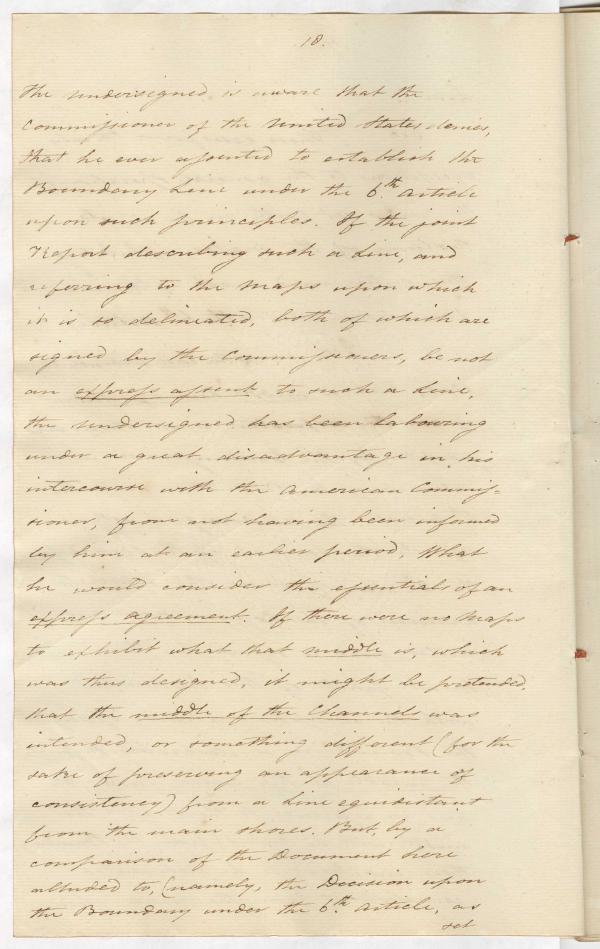 18.
The undersigned is aware that the
Commissioner of the United States denies,
that he ever assented to establish the
Boundary Line under the 6.th article
upon such principles. If the joint
Report describing such a Line, and
referring to the maps upon which
it is so delineated, both of which are
signed by the Commissioners, be not
an express assent to such a Line,
the undersigned has been labouring
under a great disadvantage in his
intercourse with the American Commis-
sioner, from not having been informed
by him at an earlier period, What
he would consider the essentials of an
express agreement. If there were no maps
to exhibit what that middle is, which
was thus designed, it might be pretended,
that the middle of the Channels was
intended, or something different (for the
sake of preserving an appearance of
consistency) from a Line equidistant
from the main shores. But, by a
comparison of the Document here
alluded to, (namely, the Decision upon
the Boundary under the 6.th article, as
set